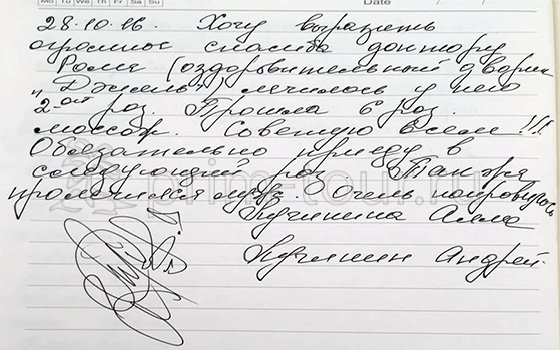 Mo Tu We Th Fr Sa Su
Date
28.10.16. Хочу выразить
огромное спасибо доктору
Роме (оздоровительный дворик
"Джель") лечилась у него
2-ой раз. Прошла 6 раз.
массаж. Советую всем!!!
Обязательно приеду в
следующий раз. Также
пролечился муж. Очень понравилось
Кучинина Алла
Кучинин Андрей.
prim-tour.ru